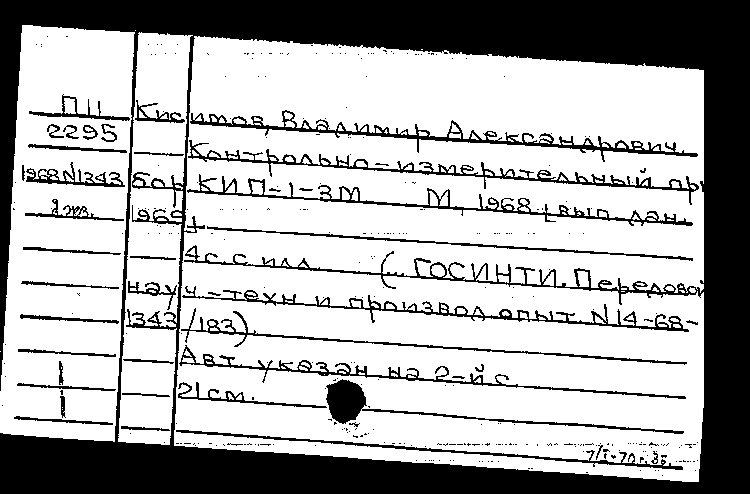 ПП Кисимов, Владимир Александрович.
2295 Контрольно-измерительный при
1968N1343 бор КИП-1-3М М, 1968 [вып. дан.
2 экз. 1969].
4 с. с илл (... ГОСИНТИ. Передовой
науч-техн и производ. опыт. N14-68-
1343/183).
Авт. указан на 2-й с
21 см.
7/I-70 г.